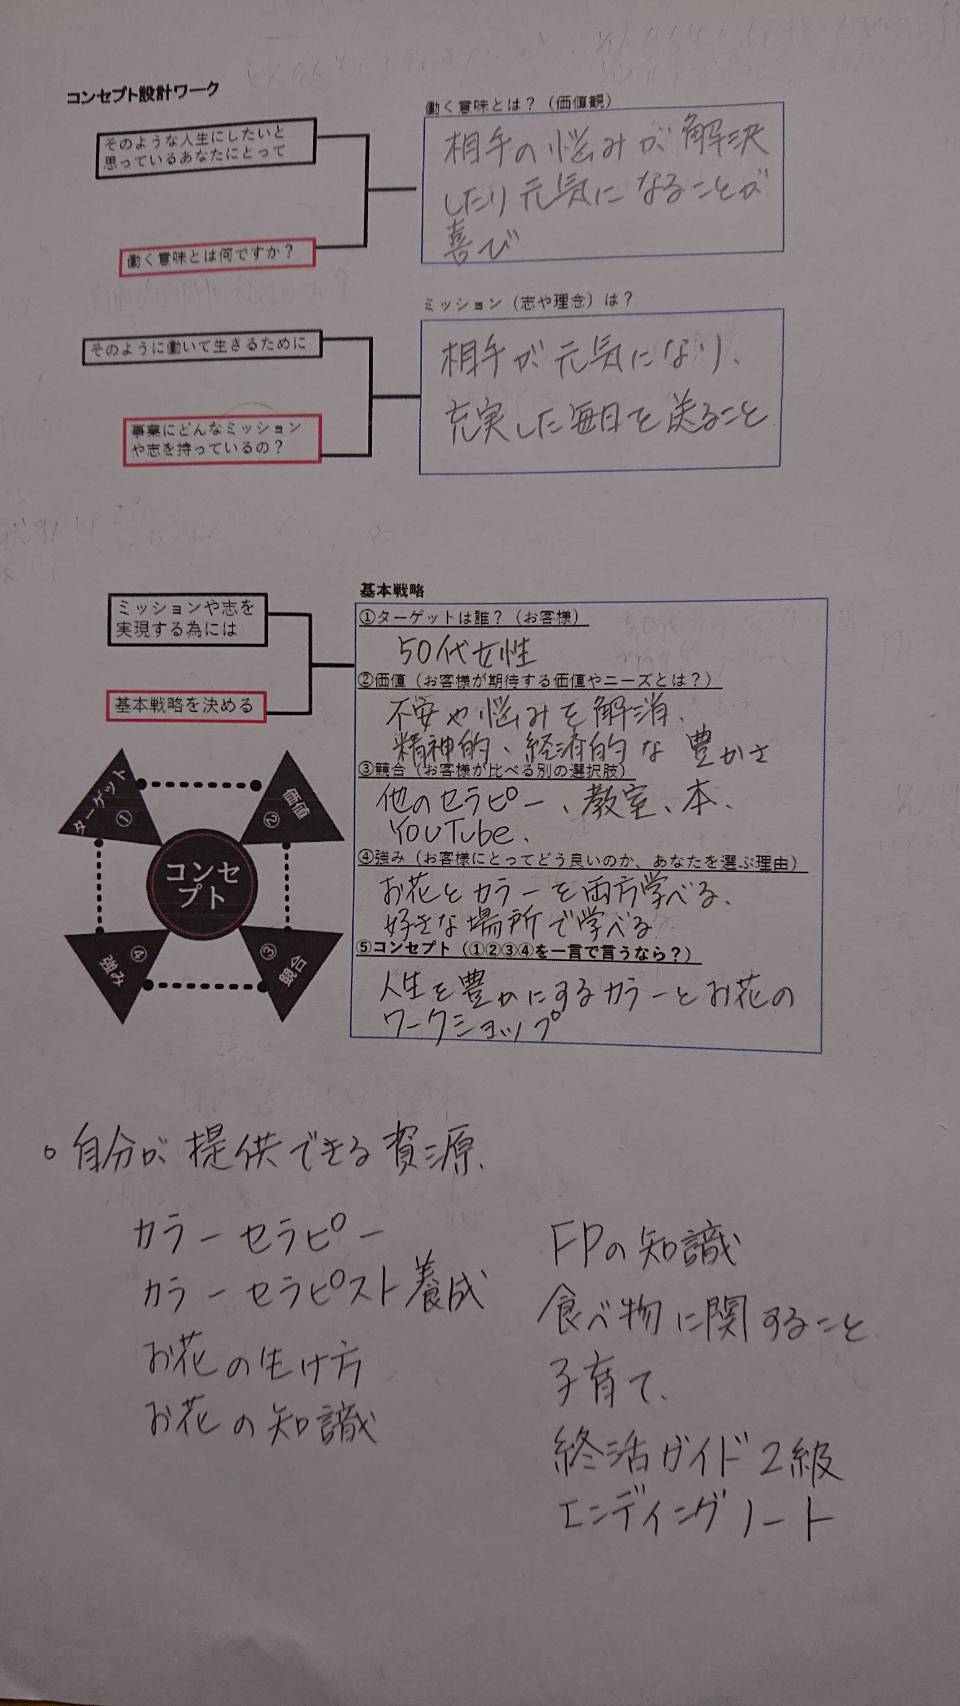 コンセプト設計ワーク
そのような人生にしたいと
思っているあなたにとって
働く意味とは何ですか？
働く意味とは？（価値観）
相手の悩みが解決
したり元気になることが
喜び
そのように働いて生きるために
事業にどんなミッション
や志を持っているの？
ミッション（志や理念）は？
相手が元気になり、
充実した毎日を送ること
ミッションや志を
実現する為には
基本戦略を決める
ターゲット①
価値②
コンセ
プト
強み④
競合③
基本戦略
①ターゲットは誰？（お客様）
50代女性
②価値（お客様が期待する価値やニーズとは？）
不安や悩みを解消、
精神的、経済的な豊かさ
③競合（お客様が比べる別の選択肢）
他のセラピー、教室、本、
YouTube、
④強み（お客様にとってどう良いのか、あなたを選ぶ理由）
お花とカラーを両方学べる、
好きな場所で学べる
⑤コンセプト（①②③④を一言で言うなら？）
人生を豊かにするカラーとお花の
ワークショップ
○自分が提供できる資源、
カラーセラピー
カラーセラピスト養成
お花の生け方
お花の知識
FPの知識
食べ物に関すること
子育て、
終活ガイド2級
エンディングノート